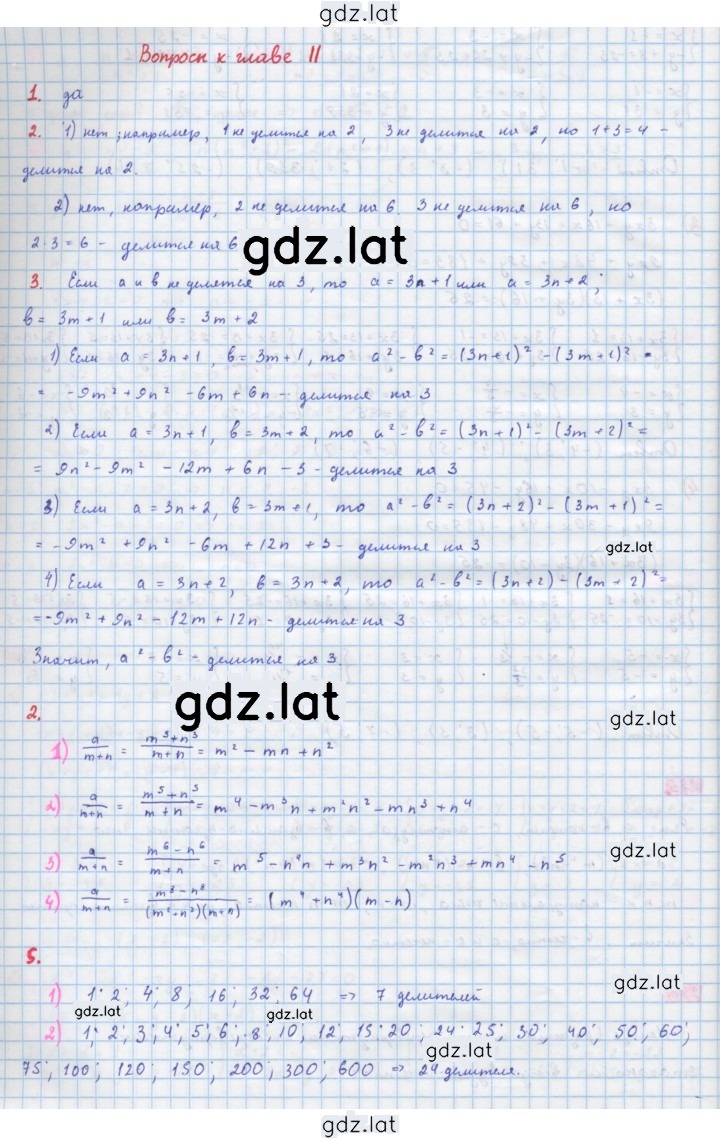 gdz.lat
Вопросы к главе II
1. да
2. 1) нет; например, 1 не делится на 2, 3 не делится на 2, но 1+3=4 –
делится на 2.
2) нет, например, 2 не делится на 6. 3 не делится на 6, но
2·3=6 – делится на 6
gdz.lat
3. Если a и b не делятся на 3, то a = 3n+1 или a = 3n+2;
b = 3m+1 или b = 3m+2
1) Если a = 3n+1, b = 3m+1, то a² - b² = (3n+1)² - (3m+1)² =
= -9m² + 9n² - 6m + 6n – делится на 3
2) Если a = 3n+1, b = 3m+2, то a² - b² = (3n+1)² - (3m+2)² =
= 9n² - 9m² - 12m + 6n - 3 – делится на 3
3) Если a = 3n+2, b = 3m+1, то a² - b² = (3n+2)² - (3m+1)² =
= -9m² + 9n² - 6m + 12n + 3 – делится на 3
gdz.lat
4) Если a = 3n+2, b = 3n+2, то a² - b² = (3n+2) - (3m+2)² =
= -9m² + 9n² - 12m + 12n – делится на 3
Значит, a² - b² – делится на 3.
gdz.lat
gdz.lat
2.
1) a/(m+n) = (m³+n³)/(m+n) = m² - mn + n²
2) a/(m+n) = (m⁵+n⁵)/(m+n) = m⁴ - m³n + m²n² - mn³ + n⁴
gdz.lat
3) a/(m+n) = (m⁶-n⁶)/(m+n) = m⁵ - n⁴n + m³n² - m²n³ + mn⁴ - n⁵
4) a/(m+n) = (m⁸-n⁸)/((m²+n²)(m+n)) = (m⁴+n⁴)(m-n)
5.
gdz.lat
1) 1; 2; 4; 8; 16; 32; 64 => 7 делителей
gdz.lat
gdz.lat
2) 1; 2; 3; 4; 5; 6; 8; 10; 12; 15; 20; 24; 25; 30; 40; 50; 60;
gdz.lat
75; 100; 120; 150; 200; 300; 600 => 24 делителя.
gdz.lat